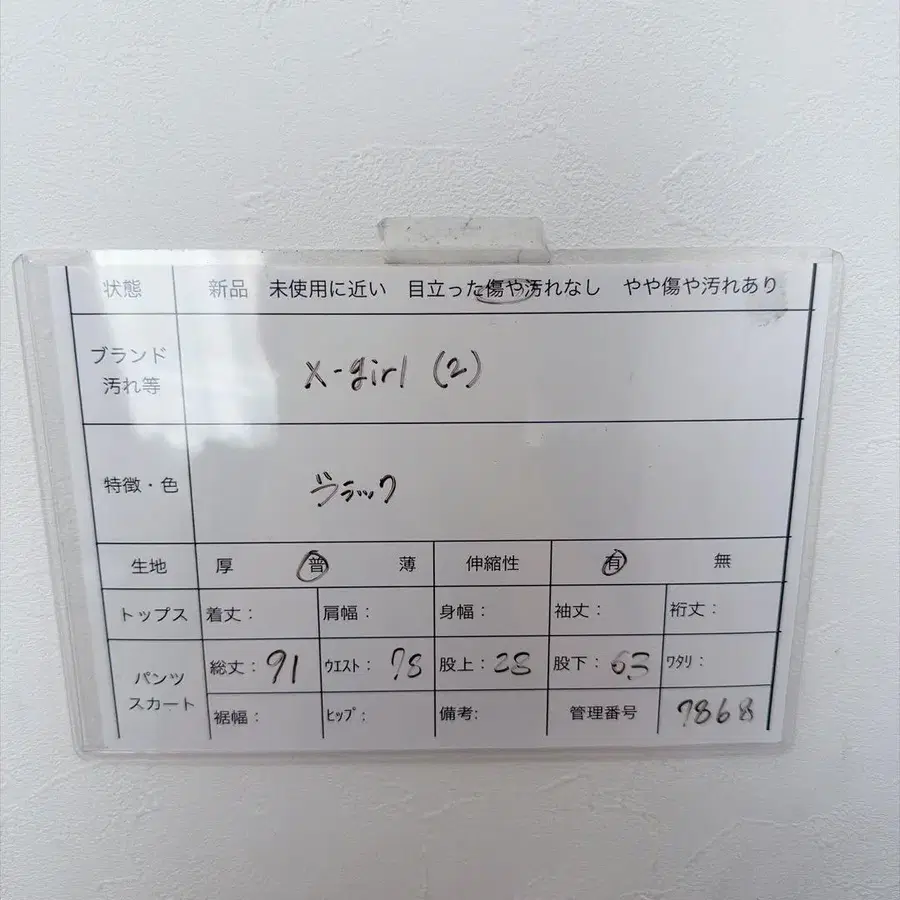 状態 新品 未使用に近い 目立った傷や汚れなし やや傷や汚れあり
ブランド 汚れ等 X-girl (2)
特徴・色 ブラック
生地 厚 普 薄 伸縮性 有 無
トップス 着丈: 肩幅: 身幅: 袖丈: 裄丈:
パンツ スカート 総丈: 91 ウエスト: 78 股上: 28 股下: 63 ワタリ:
裾幅: ヒップ: 備考: 管理番号 7868